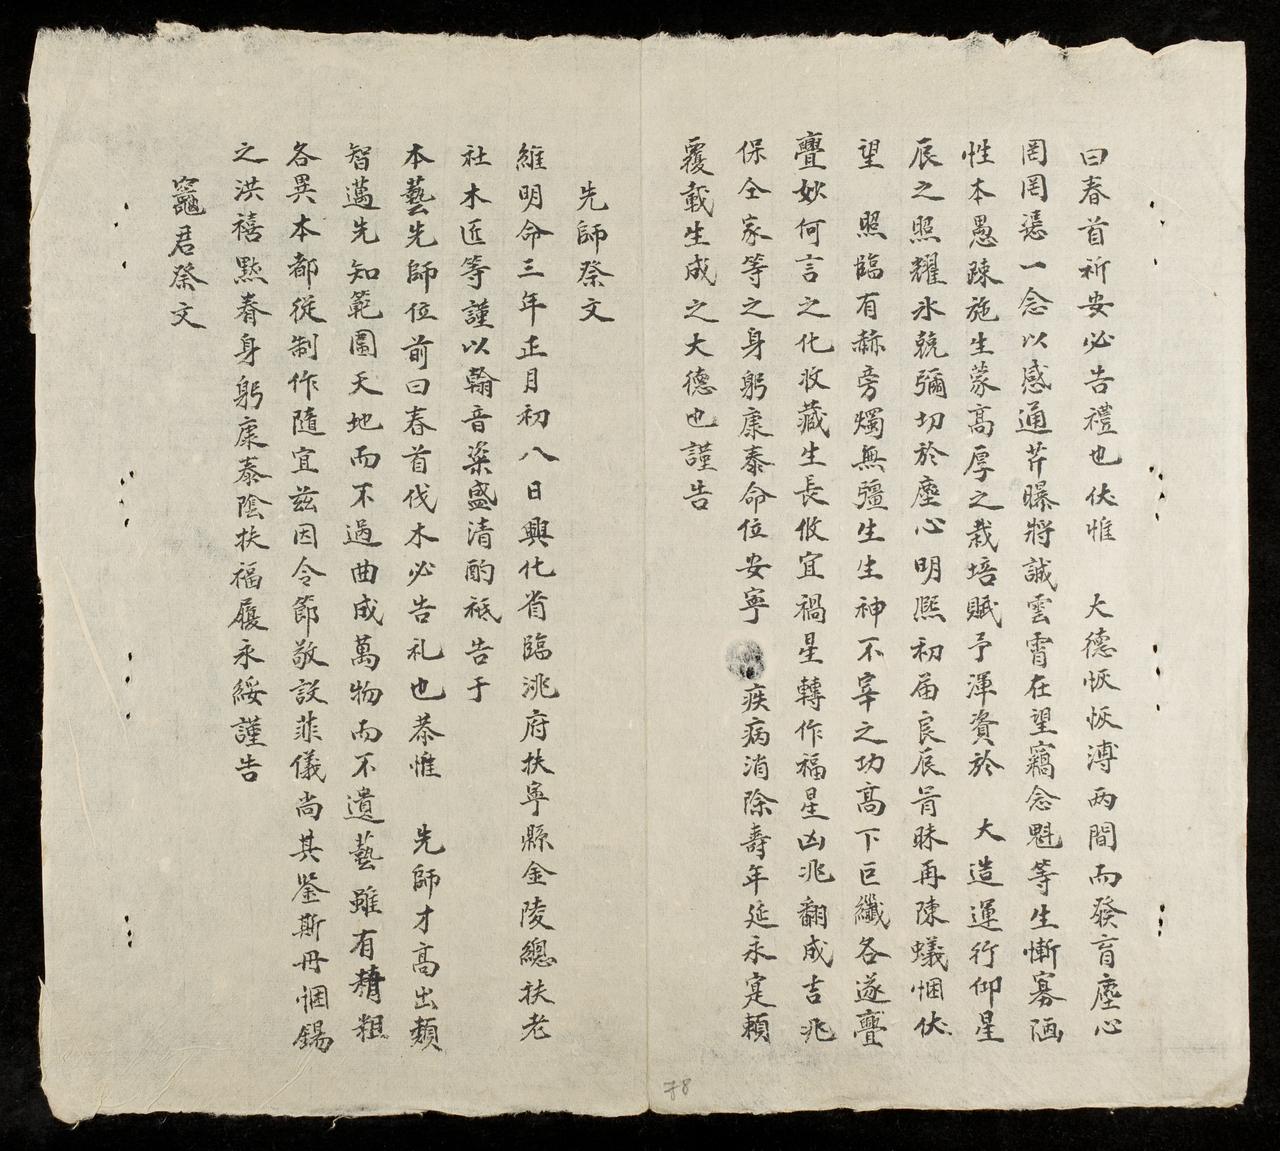 曰春首祈安必告禮也伏惟　大德恢恢溥两間而發育塵心
罔罔愆一念以感通芹曝將誠雲霄在望竊念魁等生慚寡陋
性本愚疎施生蒙高厚之栽培賦予渾資於　大造運行仰星
辰之照耀氷兢彌切於塵心明熙初届良辰肯昧再陳蟻悃伏
望　照臨有赫旁燭無彊生生神不宰之功高下巨纖各遂亹
亹妙何言之化收藏生長攸宜禍星轉作福星凶兆翻成吉兆
保全家等之身躬康泰命位安寧　疾病消除壽年延永寔賴
覆載生成之大德也謹告
先師祭文
維明命三年正月初八日興化省臨洮府扶寧縣金陵總扶老
社木匠等謹以翰音粢盛清酌祗告于
本藝先師位前曰春首伐木必告礼也恭惟　先師才高出類
智邁先知範圍天地而不過曲成萬物而不遺藝雖有精粗
各異本都從制作隨宜兹因令節敬設菲儀尚其鑒斯丹悃錫
之洪禧默眷身躬康泰陰扶福履永綏謹告
竈君祭文
78